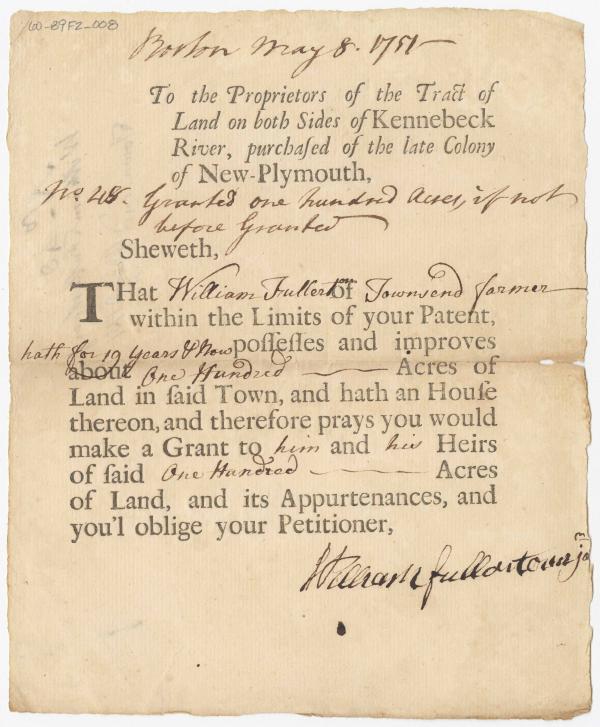 60-89F2-008
Boston May 8. 1751
To the Proprietors of the Tract of
Land on both Sides of Kennebeck
River, purchased of the late Colony
of New-Plymouth,
No. 48. Granted one hundred Acres, if not
before Granted
Sheweth,
THat William Fullerton of Townsend farmer
within the Limits of your Patent,
hath for 19 Years & Now possesses and improves
about One Hundred Acres of
Land in said Town, and hath an House
thereon, and therefore prays you would
make a Grant to him and his Heirs
of said One Hundred Acres
of Land, and its Appurtenances, and
you'l oblige your Petitioner,
William fullartown